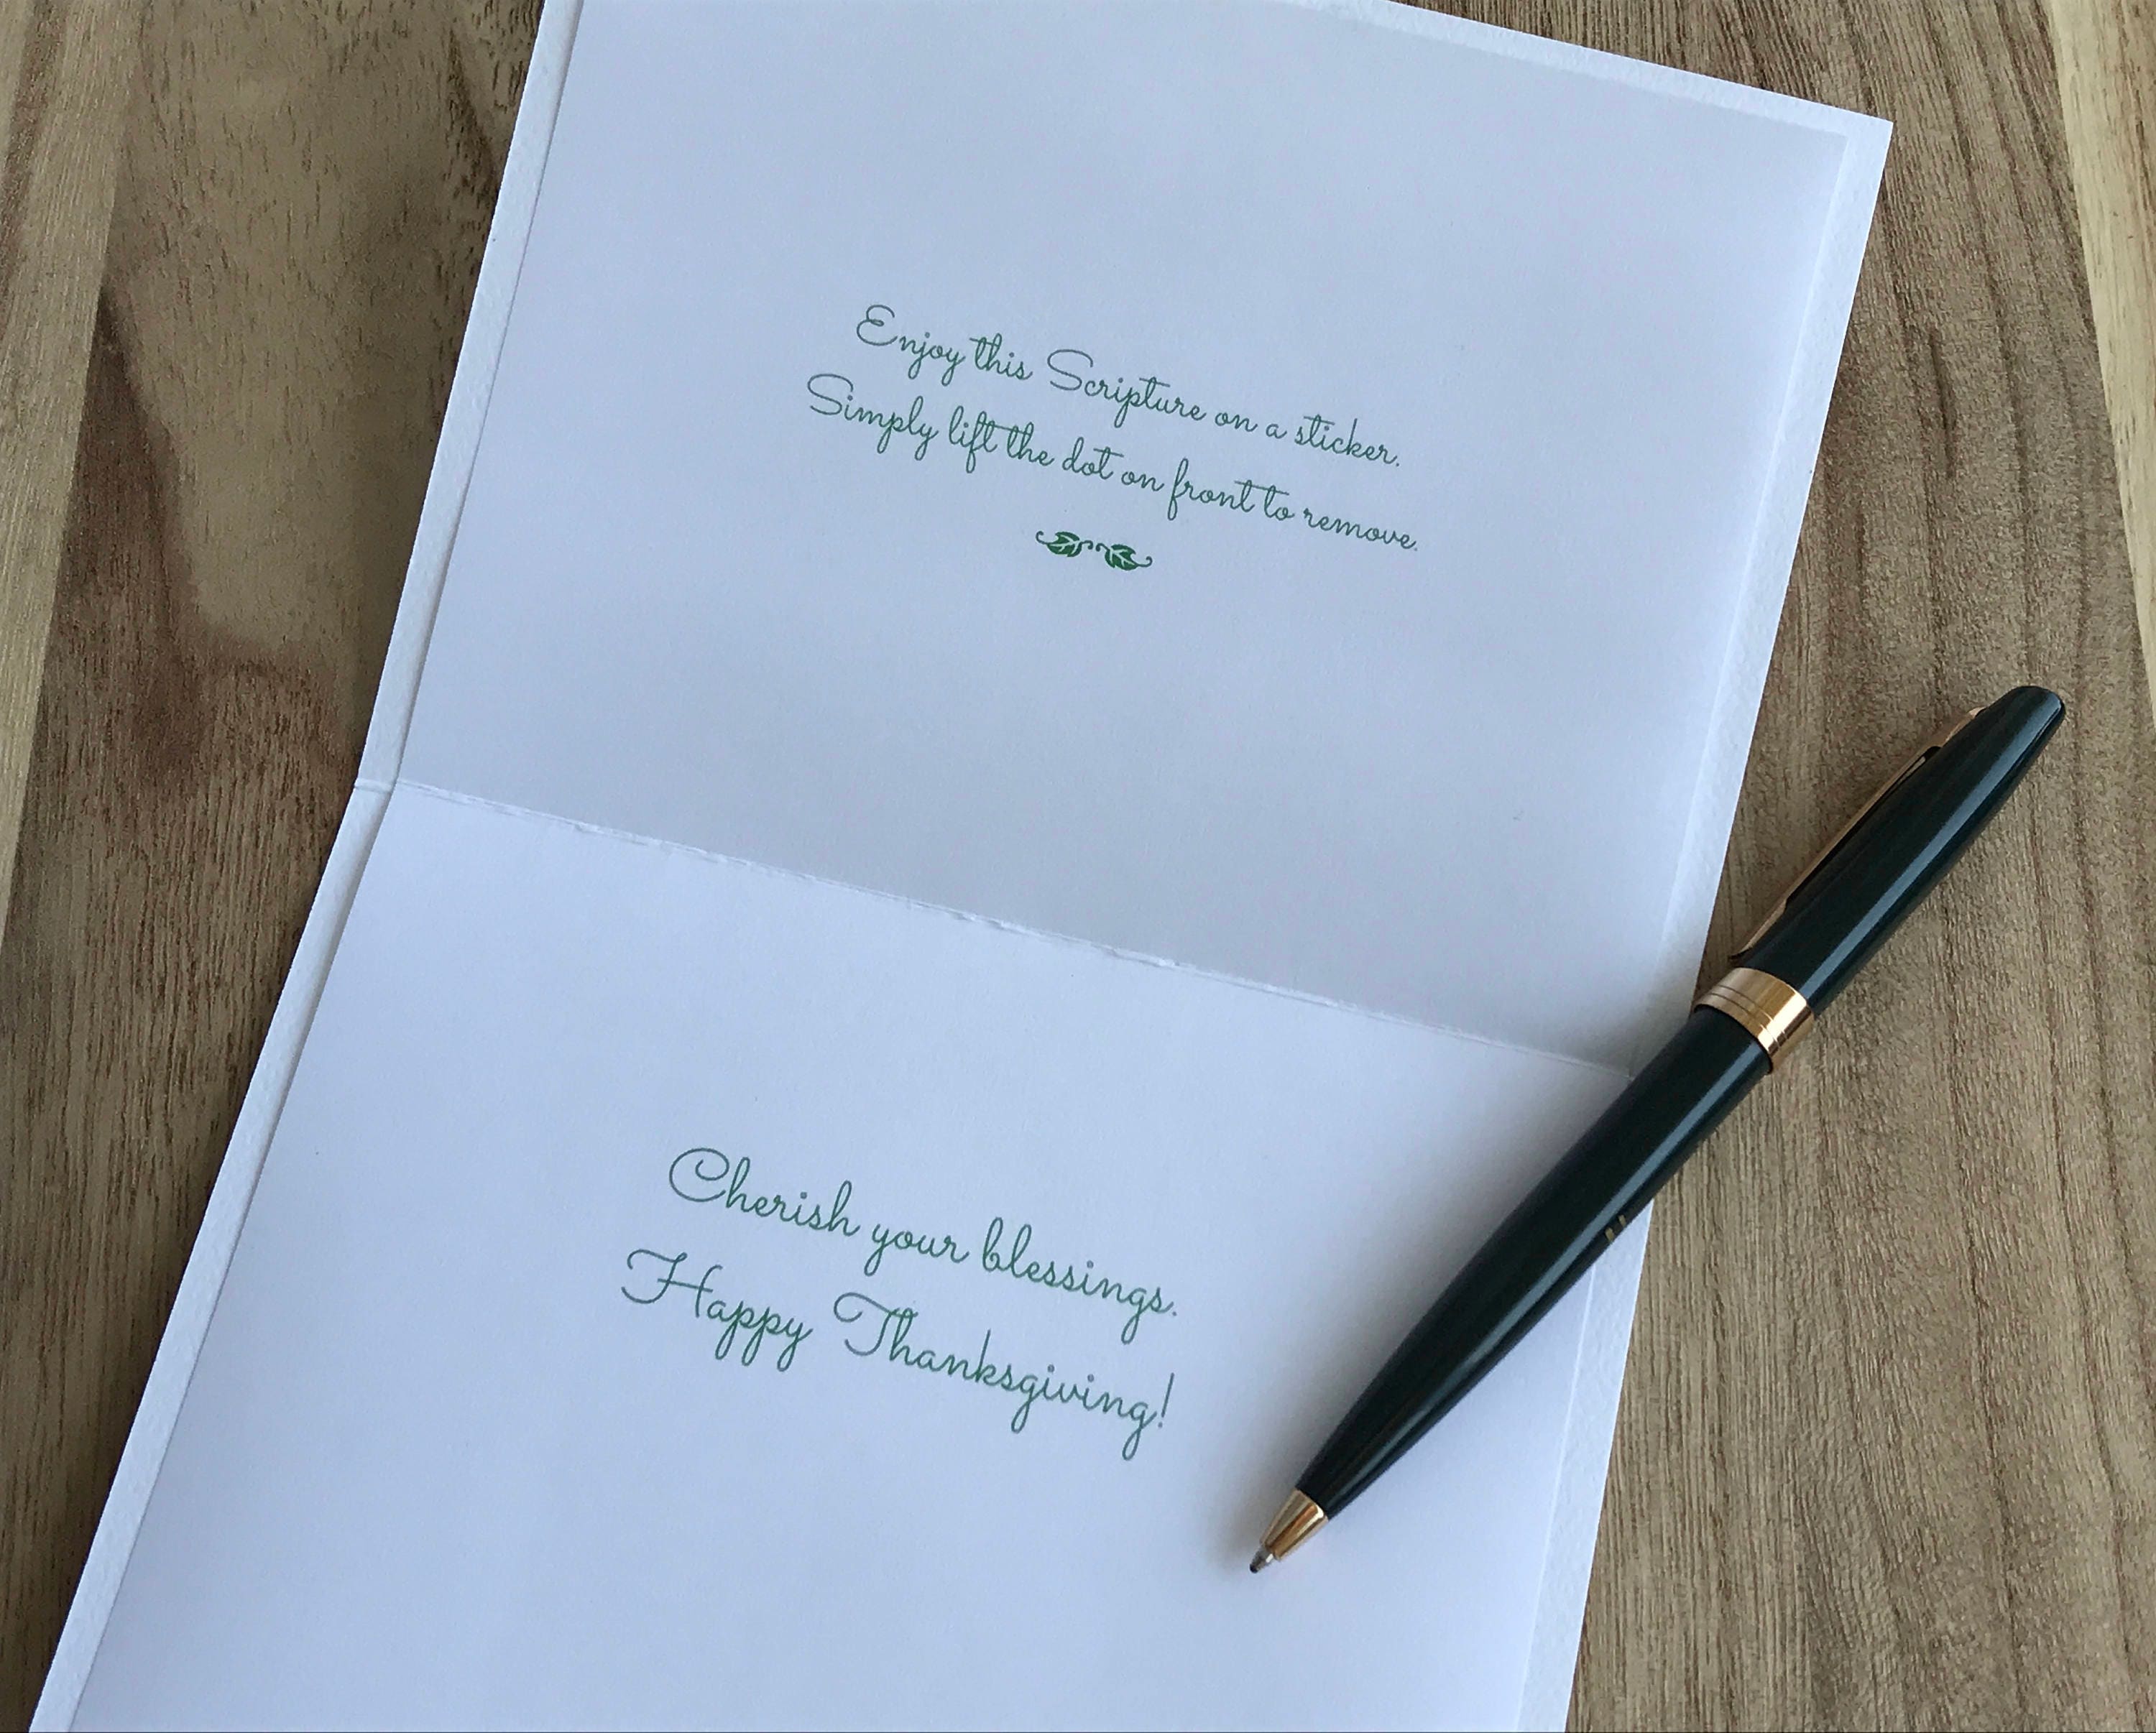 Enjoy this Scripture on a sticker.
Simply lift the dot on front to remove.
Cherish your blessings.
Happy Thanksgiving!